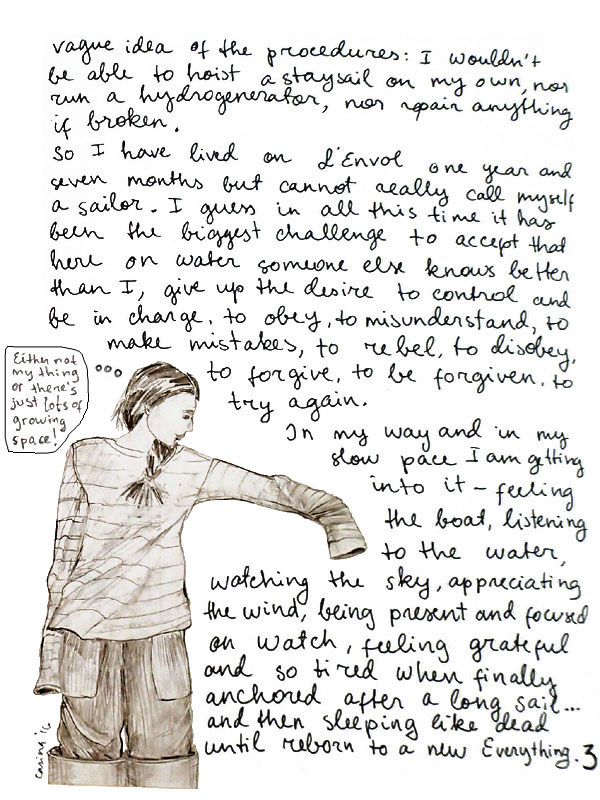 vague idea of the procedures: I wouldn't
be able to hoist a staysail on my own, nor
run a hydrogenerator, nor repair anything
if broken.
So I have lived on L'Envol one year and
seven months but cannot really call myself
a sailor. I guess in all this time it has
been the biggest challenge to accept that
here on water someone else knows better
than I, give up the desire to control and
be in charge, to obey, to misunderstand, to
make mistakes, to rebel, to disobey,
to forgive, to be forgiven, to
try again.
Either not
my thing
or there's
just lots of
growing
space!
In my way and in my
slow pace I am getting
into it – feeling
the boat, listening
to the water,
watching the sky, appreciating
the wind, being present and focused
on watch, feeling grateful
and so tired when finally
anchored after a long sail...
and then sleeping like dead
until reborn to a new Everything.
3